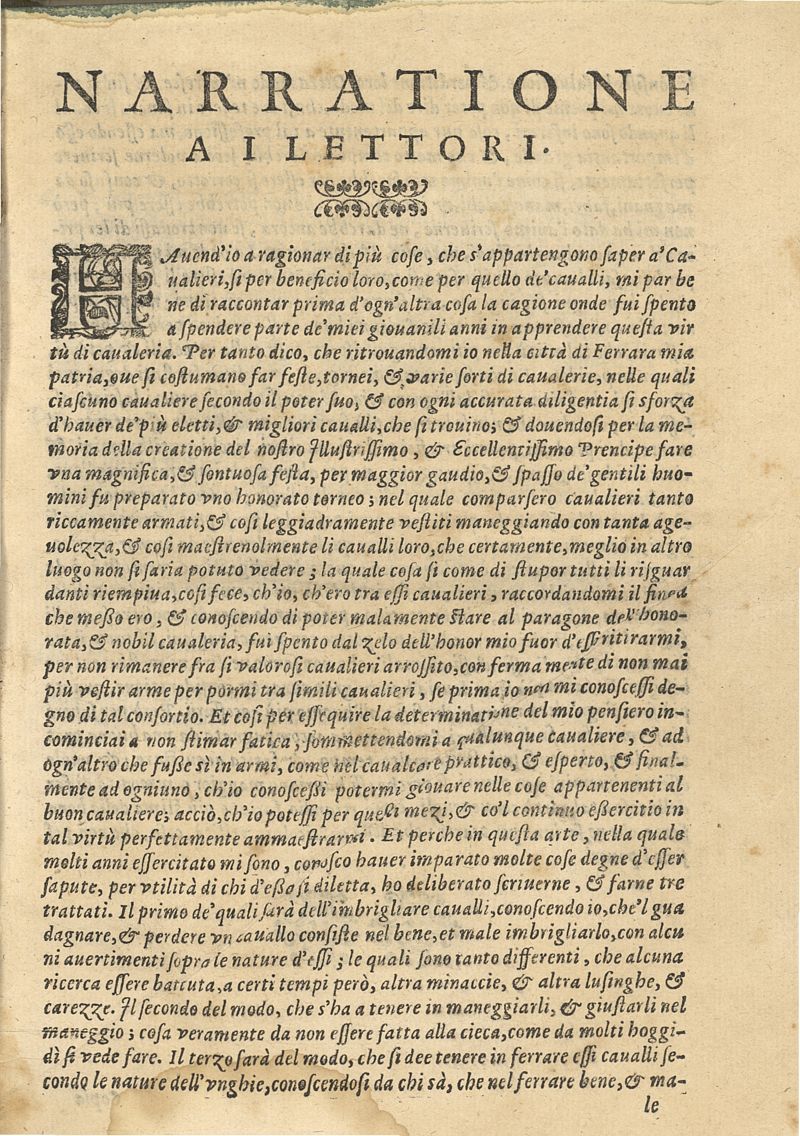 NARRATIONE
AI LETTORI.
HAuend'io a ragionar di più cose, che s'appartengono saper a' Ca-
ualieri, si per beneficio loro, come per quello de' caualli, mi par be
ne di raccontar prima d'ogn'altra cosa la cagione onde fui spento
a spendere parte de' miei giouanili anni in apprendere questa vir
tù di caualeria. Per tanto dico, che ritrouandomi io nella città di Ferrara mia
patria, oue si costumano far feste, tornei, & varie sorti di caualerie, nelle quali
ciascuno caualiere secondo il poter suo, & con ogni accurata diligentia si sforza
d'hauer de' più eletti, & migliori caualli, che si trouino; & douendosi per la me-
moria della creatione del nostro Illustrissimo, & Eccellentissimo Prencipe fare
vna magnifica, & sontuosa festa, per maggior gaudio, & spasso de' gentili huo-
mini fu preparato vno honorato torneo; nel quale comparsero caualieri tanto
riccamente armati, & cosi leggiadramente vestiti maneggiando con tanta age-
uolezza, & cosi maestreuolmente li caualli loro, che certamente, meglio in altro
luogo non si saria potuto vedere; la quale cosa si come di stupor tutti li risguar
danti riempiua, cosi fece, ch'io, ch'ero tra essi caualieri, raccordandomi il fine a
che messo ero, & conoscendo di poter malamente stare al paragone dell'hono-
rata, & nobil caualeria, fui spento dal zelo dell'honor mio fuor d'essi ritirarmi,
per non rimanere fra si valorosi caualieri arrossito, con ferma mente di non mai
più vestir arme per pormi tra simili caualieri, se prima io non mi conoscessi de-
gno di tal consortio. Et cosi per essequire la determinatione del mio pensiero in-
cominciai a non stimar fatica, sommettendomi a qualunque caualiere, & ad
ogn'altro che fusse sì in armi, come nel caualcare prattico, & esperto, & final-
mente ad ogniuno, ch'io conoscessi potermi giouare nelle cose appartenenti al
buon caualiere; acciò, ch'io potessi per questi mezi, & co'l continuo essercitio in
tal virtù perfettamente ammaestrarmi. Et perche in questa arte, nella quale
molti anni essercitato mi sono, conosco hauer imparato molte cose degne d'esser
sapute, per vtilità di chi d'essa si diletta, ho deliberato scriuerne, & farne tre
trattati. Il primo de' quali sarà dell'imbrigliare caualli, conoscendo io, che'l gua
dagnare, & perdere vn cauallo consiste nel bene, et male imbrigliarlo, con alcu
ni auertimenti sopra le nature d'essi; le quali sono tanto differenti, che alcuna
ricerca essere battuta, a certi tempi però, altra minaccie, & altra lusinghe, &
carezze. Il secondo del modo, che s'ha a tenere in maneggiarli, & giustarli nel
maneggio; cosa veramente da non essere fatta alla cieca, come da molti hoggi-
dì si vede fare. Il terzo sarà del modo, che si dee tenere in ferrare essi caualli se-
condo le nature dell'vnghie, conoscendosi da chi sà, che nel ferrare bene, & ma-
le